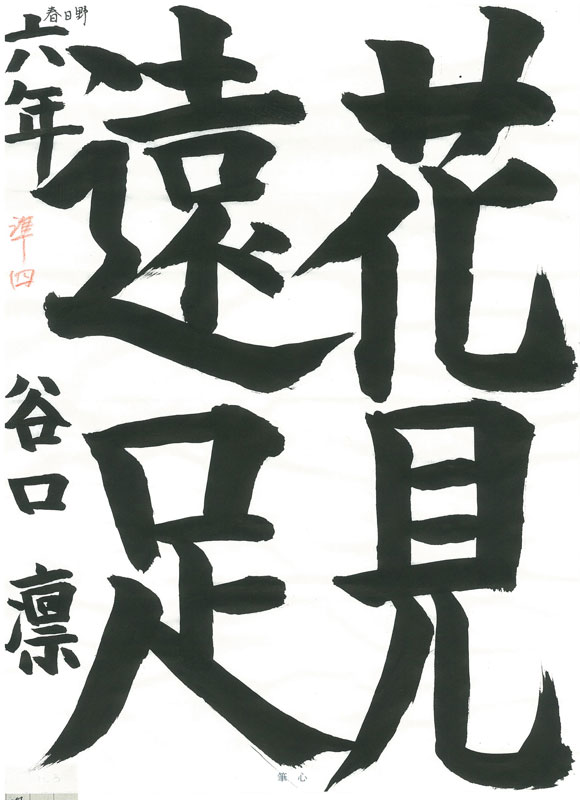 花見
遠足
春日野
六年
準四
谷口 凛
筆心